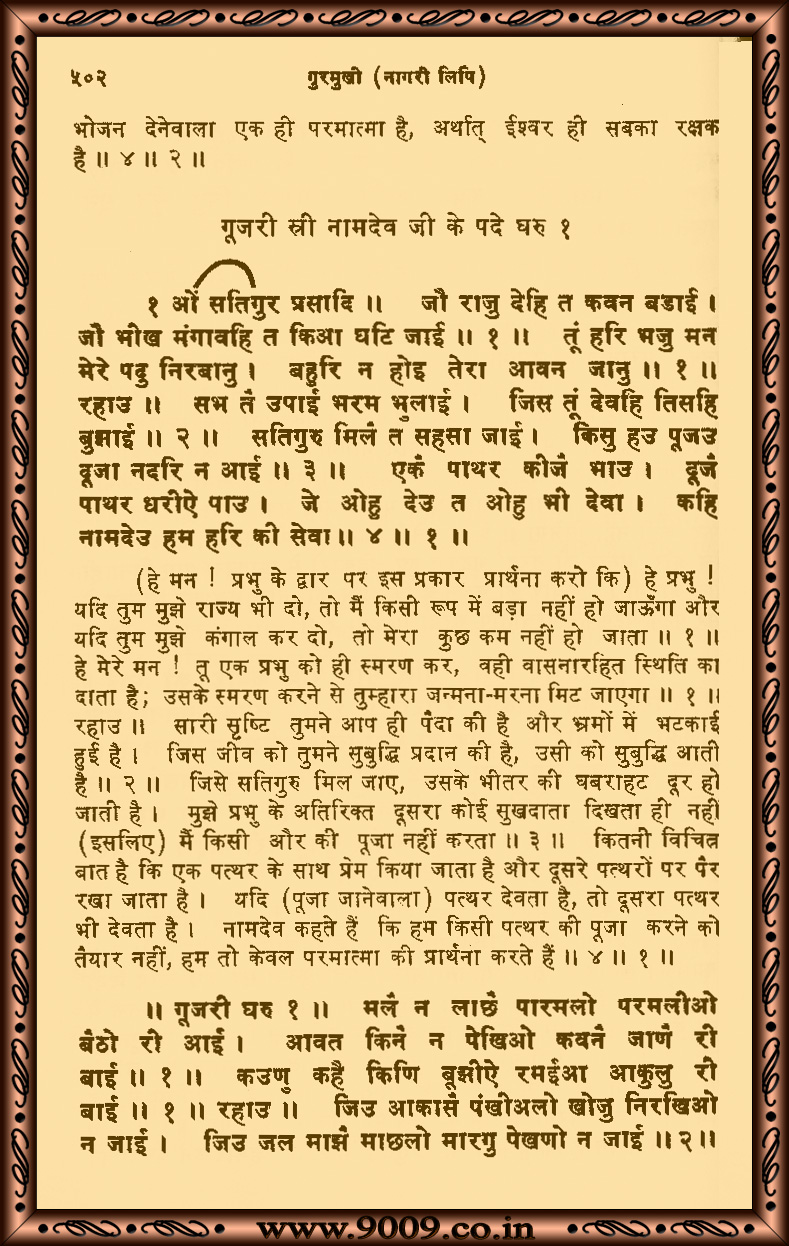 ५०२ गुरमुखी (नागरी लिपि)
भोजन देनेवाला एक ही परमात्मा है, अर्थात् ईश्वर ही सबका रक्षक
है ॥ ४ ॥ २ ॥
गूजरी स्री नामदेव जी के पदे घरु १
१ ओं सतिगुर प्रसादि ॥ जौ राजु देहि त कवन बडाई ।
जौ भीख मंगावहि त किआ घटि जाई ॥ १ ॥ तूं हरि भजु मन
मेरे पदु निरबानु । बहुरि न होइ तेरा आवन जानु ॥ १ ॥
रहाउ ॥ सभ तै उपाई भरम भुलाई । जिस तूं देवहि तिसहि
बुझाई ॥ २ ॥ सतिगुरु मिलै त सहसा जाई । किसु हउ पूजउ
दूजा नदरि न आई ॥ ३ ॥ एकै पाथर कीजै भाउ । दूजै
पाथर धरीऐ पाउ । जे ओहु देउ त ओहु भी देवा । कहि
नामदेउ हम हरि की सेवा ॥ ४ ॥ १ ॥
(हे मन ! प्रभु के द्वार पर इस प्रकार प्रार्थना करो कि) हे प्रभु !
यदि तुम मुझे राज्य भी दो, तो मैं किसी रूप में बड़ा नहीं हो जाऊँगा और
यदि तुम मुझे कंगाल कर दो, तो मेरा कुछ कम नहीं हो जाता ॥ १ ॥
हे मेरे मन ! तू एक प्रभु को ही स्मरण कर, वही वासनारहित स्थिति का
दाता है; उसके स्मरण करने से तुम्हारा जन्मना-मरना मिट जाएगा ॥ १ ॥
रहाउ ॥ सारी सृष्टि तुमने आप ही पैदा की है और भ्रमों में भटकाई
हुई है । जिस जीव को तुमने सुबुद्धि प्रदान की है, उसी को सुबुद्धि आती
है ॥ २ ॥ जिसे सतिगुरु मिल जाए, उसके भीतर की घबराहट दूर हो
जाती है । मुझे प्रभु के अतिरिक्त दूसरा कोई सुखदाता दिखता ही नहीं
(इसलिए) मैं किसी और की पूजा नहीं करता ॥ ३ ॥ कितनी विचित्र
बात है कि एक पत्थर के साथ प्रेम किया जाता है और दूसरे पत्थरों पर पैर
रखा जाता है । यदि (पूजा जानेवाला) पत्थर देवता है, तो दूसरा पत्थर
भी देवता है । नामदेव कहते हैं कि हम किसी पत्थर की पूजा करने को
तैयार नहीं, हम तो केवल परमात्मा की प्रार्थना करते हैं ॥ ४ ॥ १ ॥
॥ गूजरी घरु १ ॥ मलै न लाछै पारमलो परमलीओ
बैठो री आई । आवत किनै न पेखिओ कवनै जाणै री
बाई ॥ १ ॥ कउणु कहै किणि बूझीऐ रमईआ आकुलु री
बाई ॥ १ ॥ रहाउ ॥ जिउ आकासै पंखीअलो खोजु निरखिओ
न जाई । जिउ जल माझै माछलो मारगु पेखणो न जाई ॥ २ ॥
www.9009.co.in